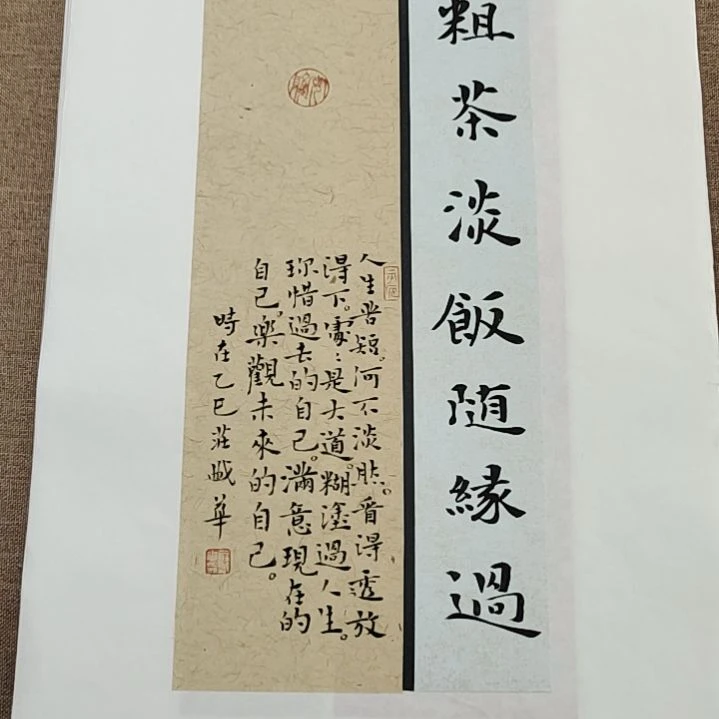 粗茶淡飯随緣過
人生苦短。何不淡然。看得透放
得下。處:是大道。糊塗過人生。
珎惜過去的自己。滿意現在的
自己。樂觀未來的自己。
時在乙巳莊華